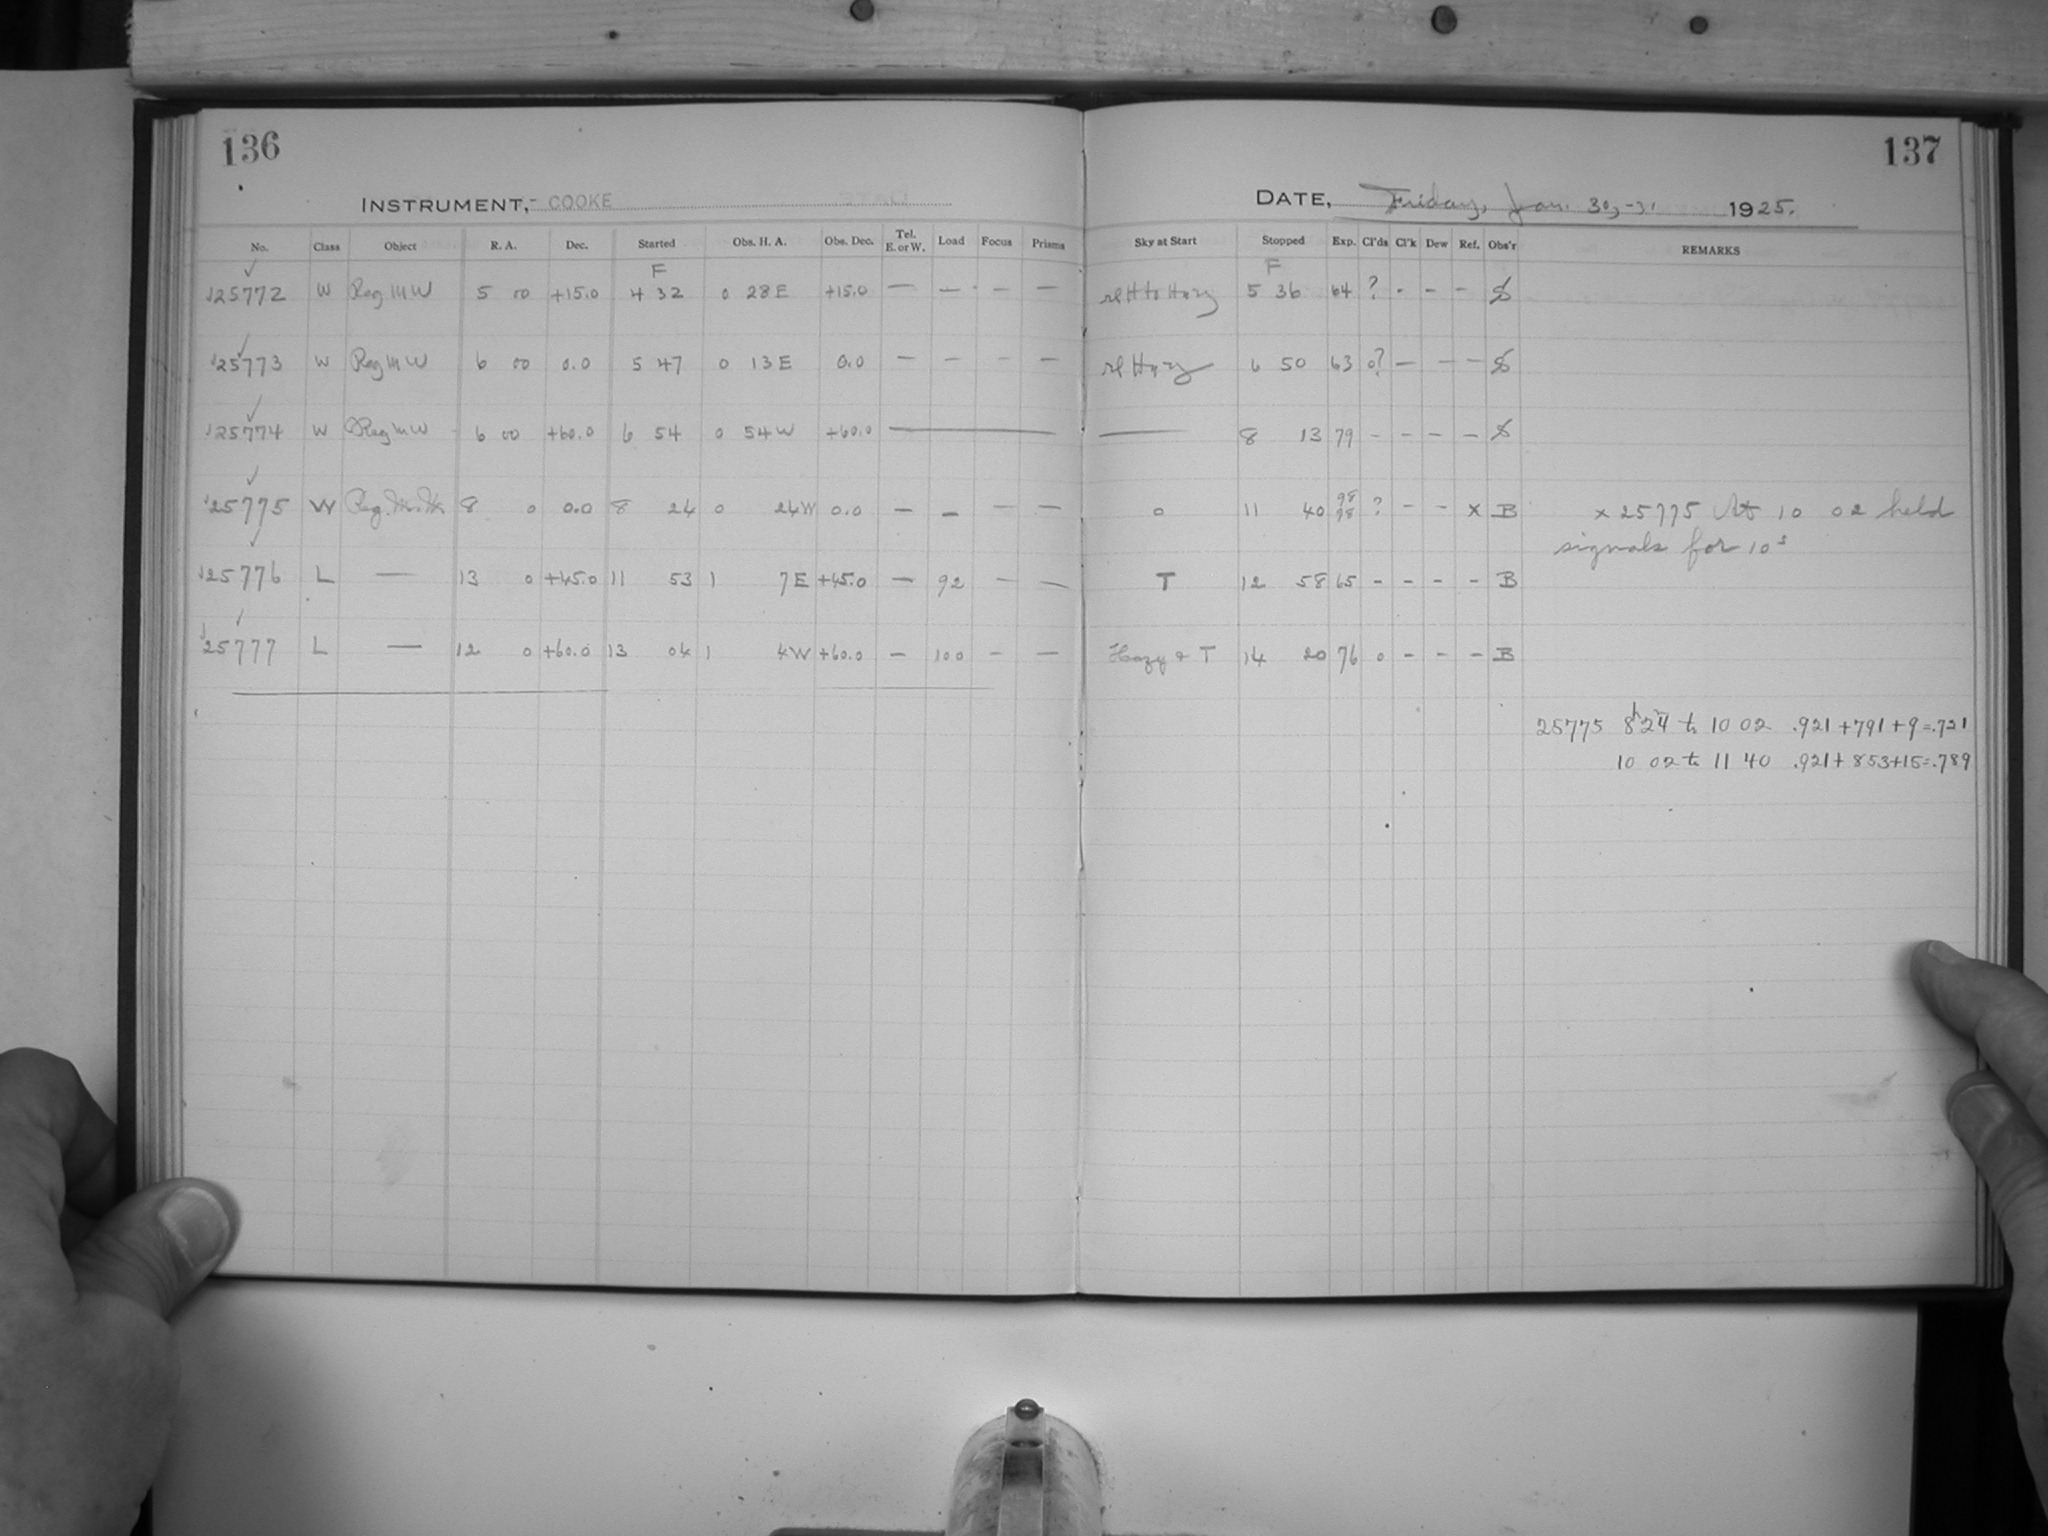 136
INSTRUMENT,- COOKE
No. Class Object R. A. Dec. Started Obs. H. A. Obs. Dec. Tel. E. or W. Load Focus Prisms
F
25772 W Reg M W 5 00 +15.0 4 32 0 28 E +15.0 — — — —
25773 W Reg M W 6 00 0.0 5 47 0 13 E 0.0 — — — —
25774 W Reg M W 6 00 +60.0 6 54 0 54 W +60.0 —
25775 W Reg. 8 0 0.0 8 24 0 24 W 0.0 — — — —
25776 L — 13 0 +45.0 11 53 1 7 E +45.0 — 92 — —
25777 L — 12 0 +60.0 13 04 1 4 W +60.0 — 100 — —
137
DATE, Friday, Jan. 30,-31 1925.
Sky at Start Stopped Exp. Cl'ds Cl'k Dew Ref. Obs'r REMARKS
F
sl H to Hazy 5 36 64 ? - - - S
sl Hazy 6 50 63 0? — — — S
— 8 13 79 - - - - S
0 11 40 98 98 ? - - X B x 25775 At 10 02 held
signals for 10s
T 12 58 65 - - - - B
Hazy & T 14 20 76 0 - - - B
25775 8h 24m to 10 02 .921+791+9=.721
10 02 to 11 40 .921+853+15=.789